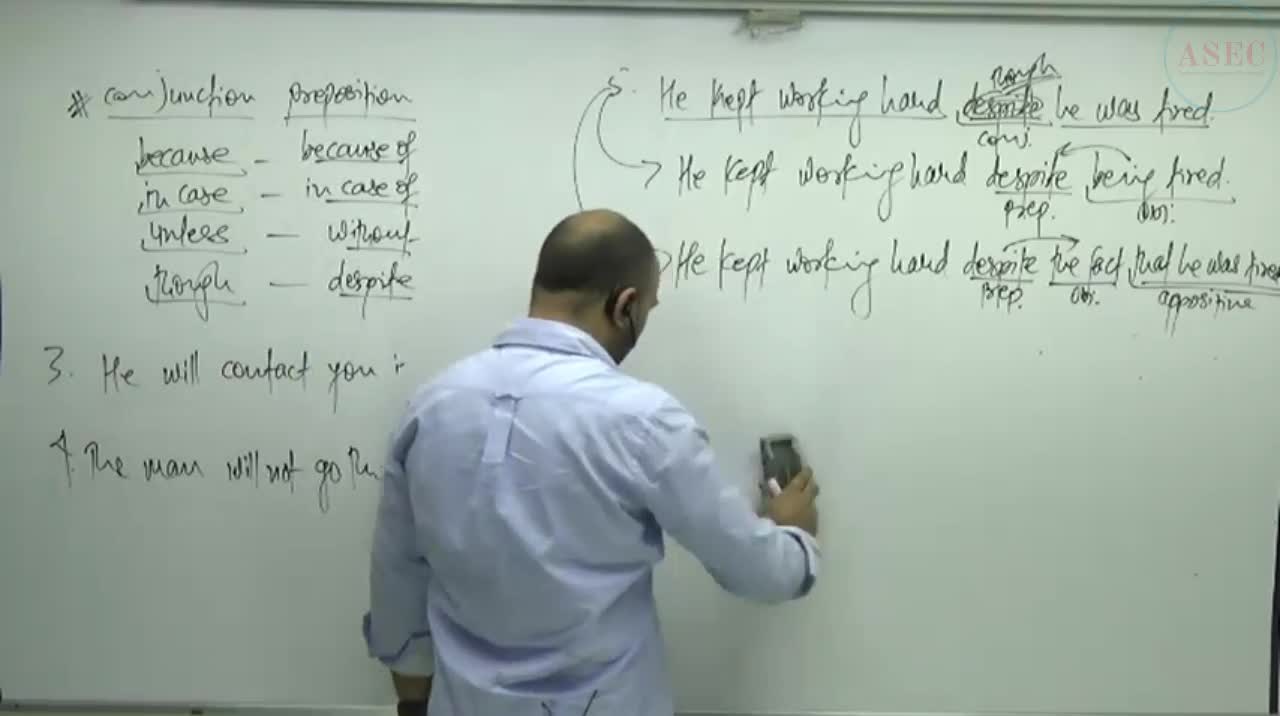 * conjunction preposition
because - because of
in case - in case of
unless - without
though - despite
3. He will contact you i
4. The man will not go th
though
5. He kept working hard despite he was tired.
conj.
He kept working hard despite being tired.
prep. obj.
He kept working hard despite the fact that he was tired
prep. obj. appositive
ASEC